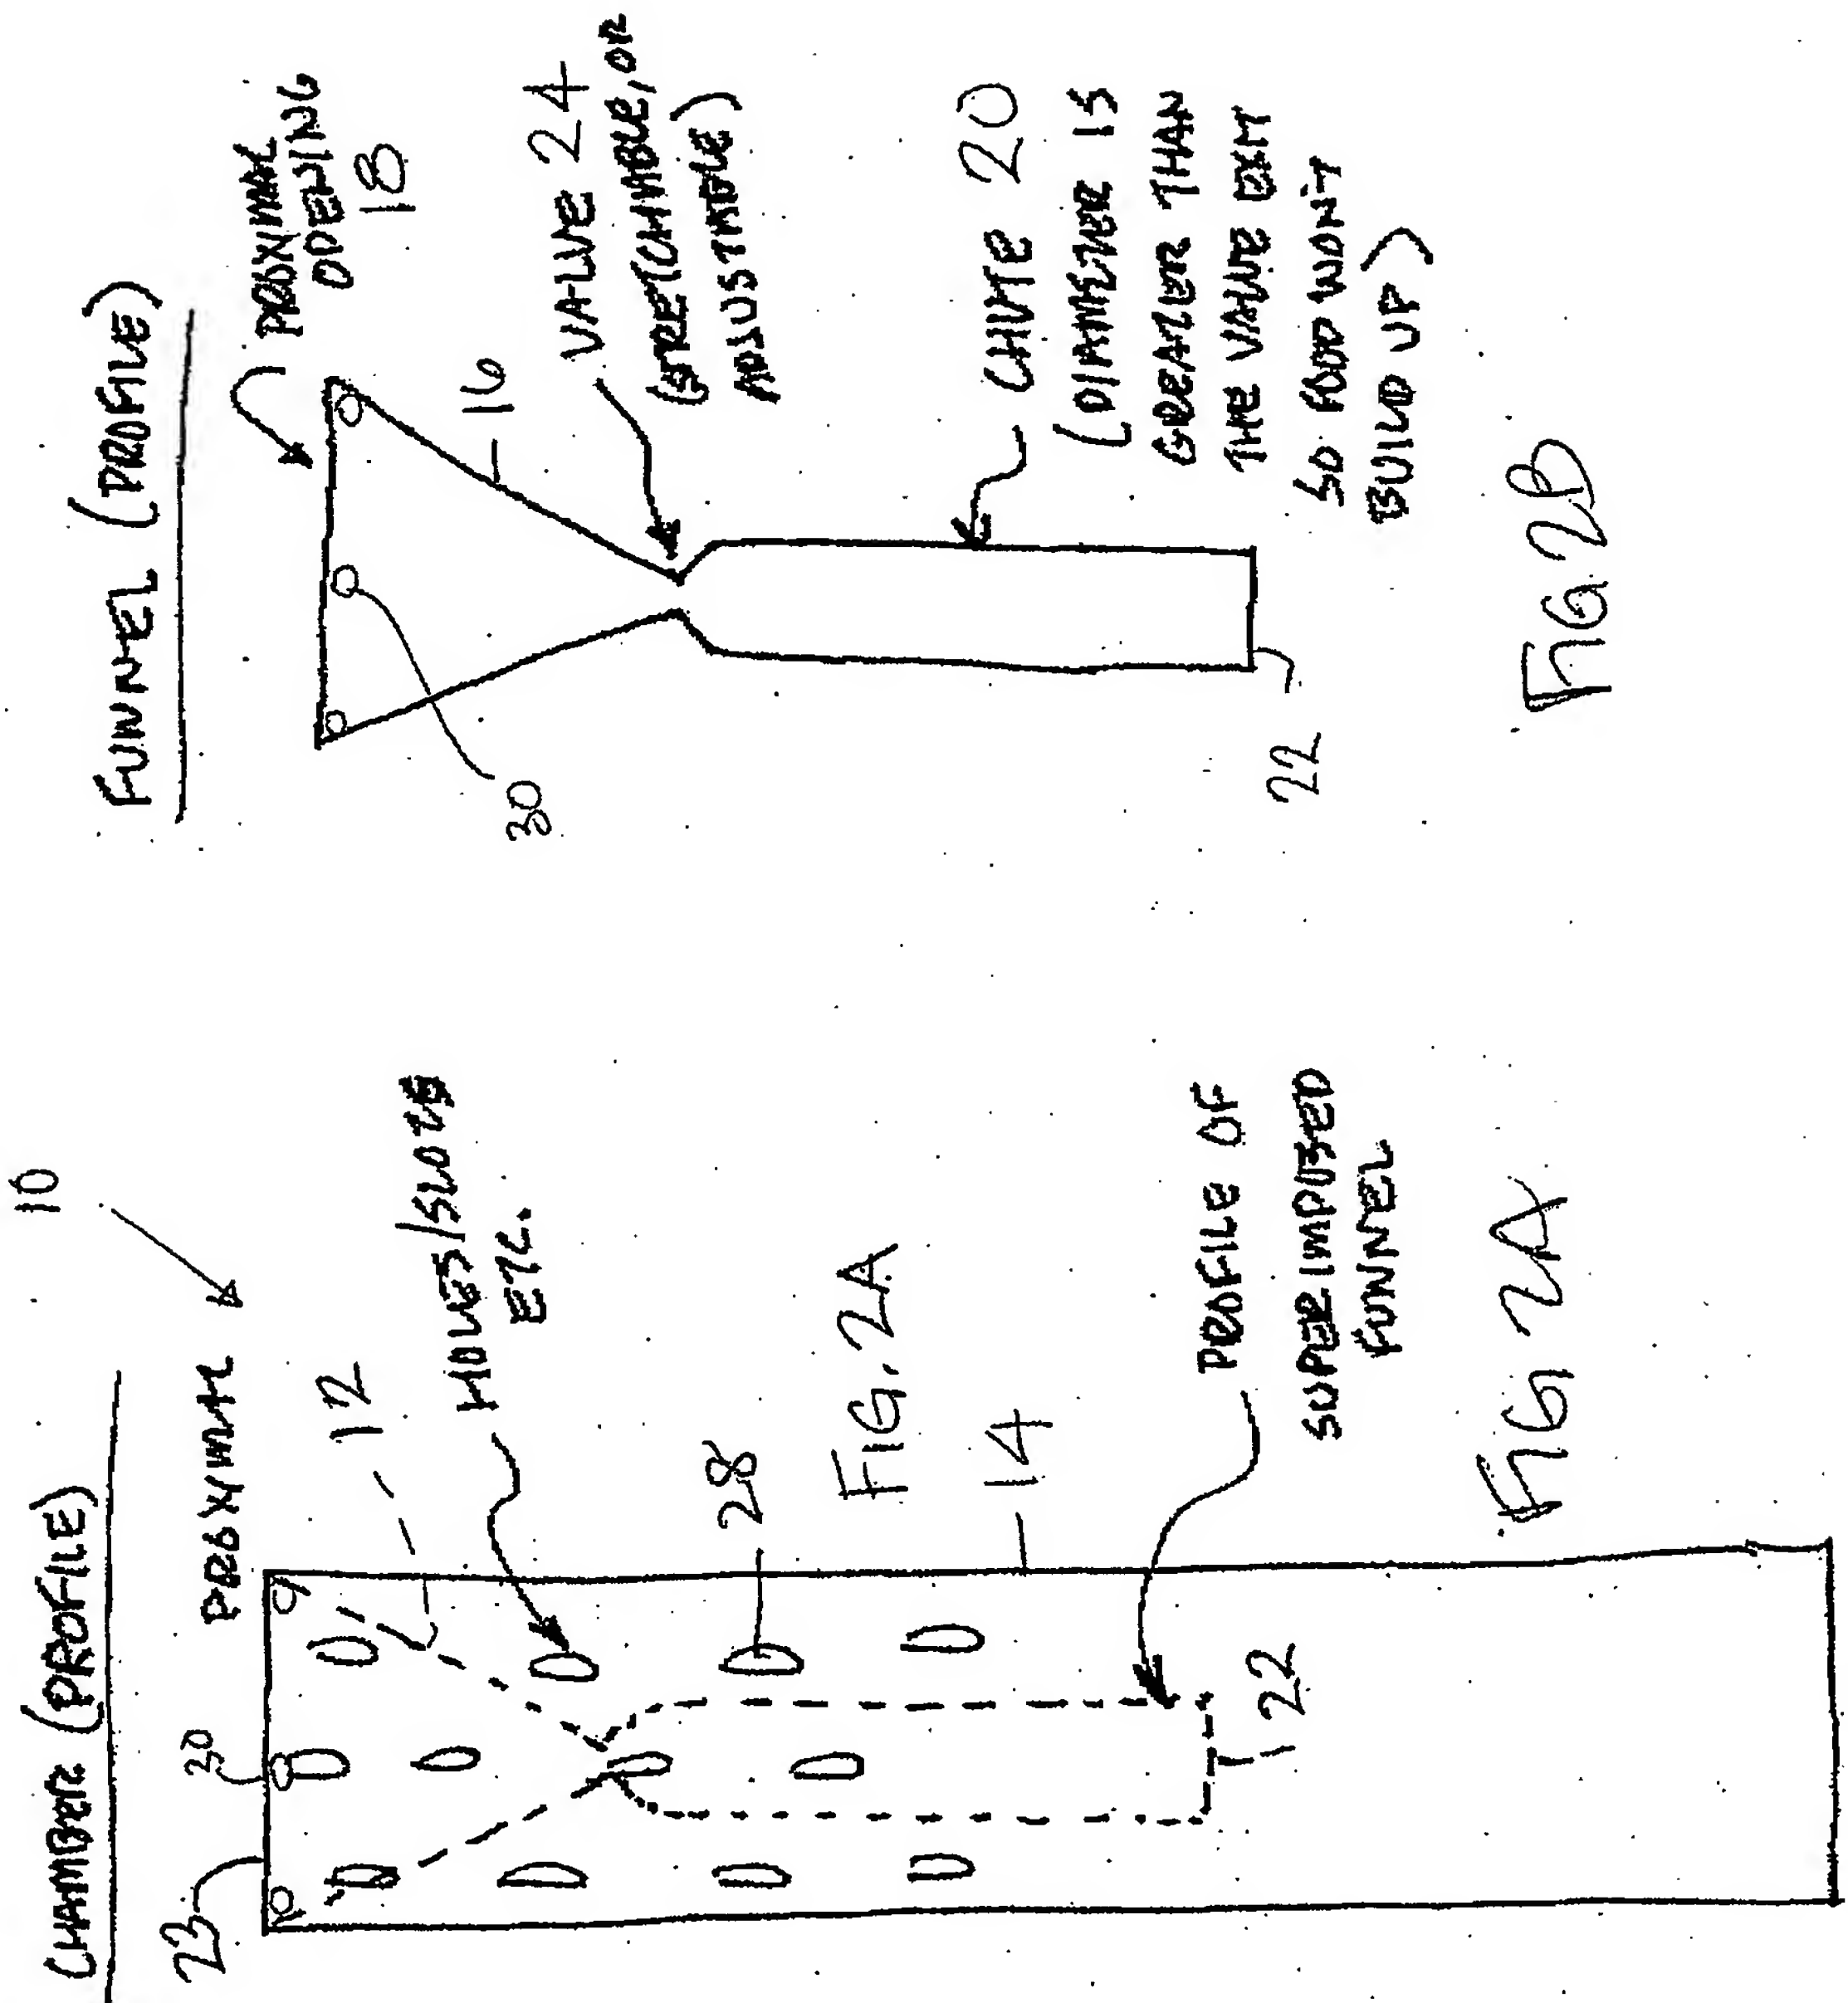 CHAMBER (PROFILE)
10
23
30
PROXIMAL
12
HOLES/SLOTS
ETC.
28
FIG. 2A
14
PROFILE OF
SUPERIMPOSED
FUNNEL
22
FIG 2A
FUNNEL (PROFILE)
PROXIMAL
OPENING
18
16
30
VALVE 24
(STRETCHABLE, OR
ADJUSTABLE)
CHUTE 20
(DIAMETER IS
GREATER THAN
THE VALVE EXIT
SO FOOD WON'T
BUILD UP)
22
FIG 2B